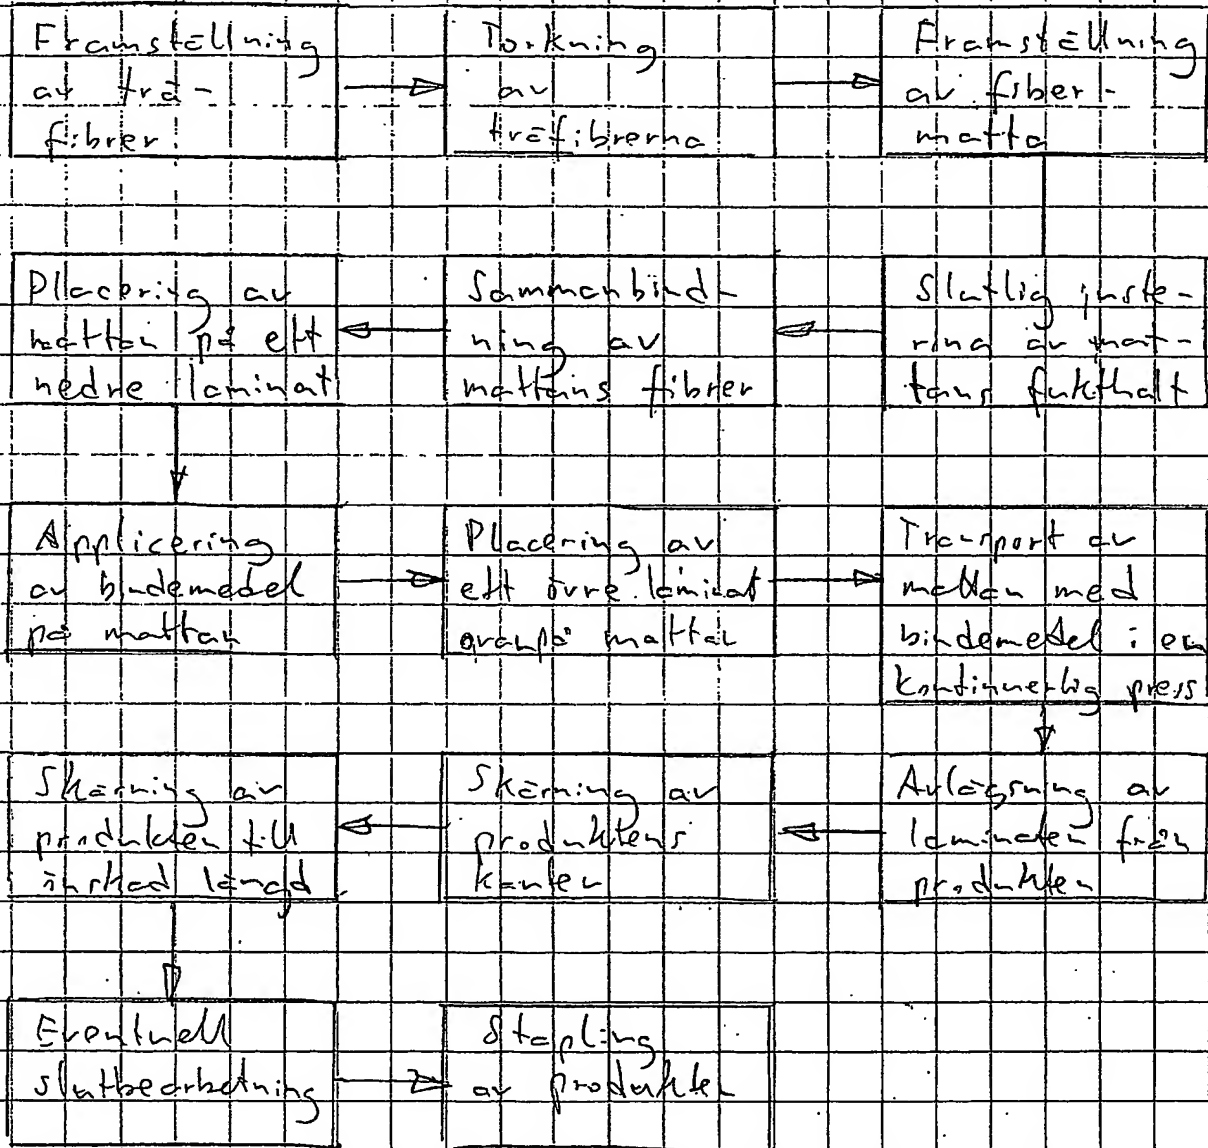 Framställning
av trä-
fibrer
Torkning
av
träfibrerna
Framställning
av fiber-
matta
Slutlig juste-
ring av mat-
tans fukthalt
Sammanbind-
ning av
mattans fibrer
Placering av
mattan på ett
nedre laminat
Applicering
av bindemedel
på mattan
Placering av
ett övre laminat
ovanpå mattan
Transport av
mattan med
bindemedel i en
kontinuerlig press
Avlägsning av
laminaten från
produkten
Skärning av
produktens
kanter
Skärning av
produkten till
önskad längd
Eventuell
slutbearbetning
Stapling
av produkten